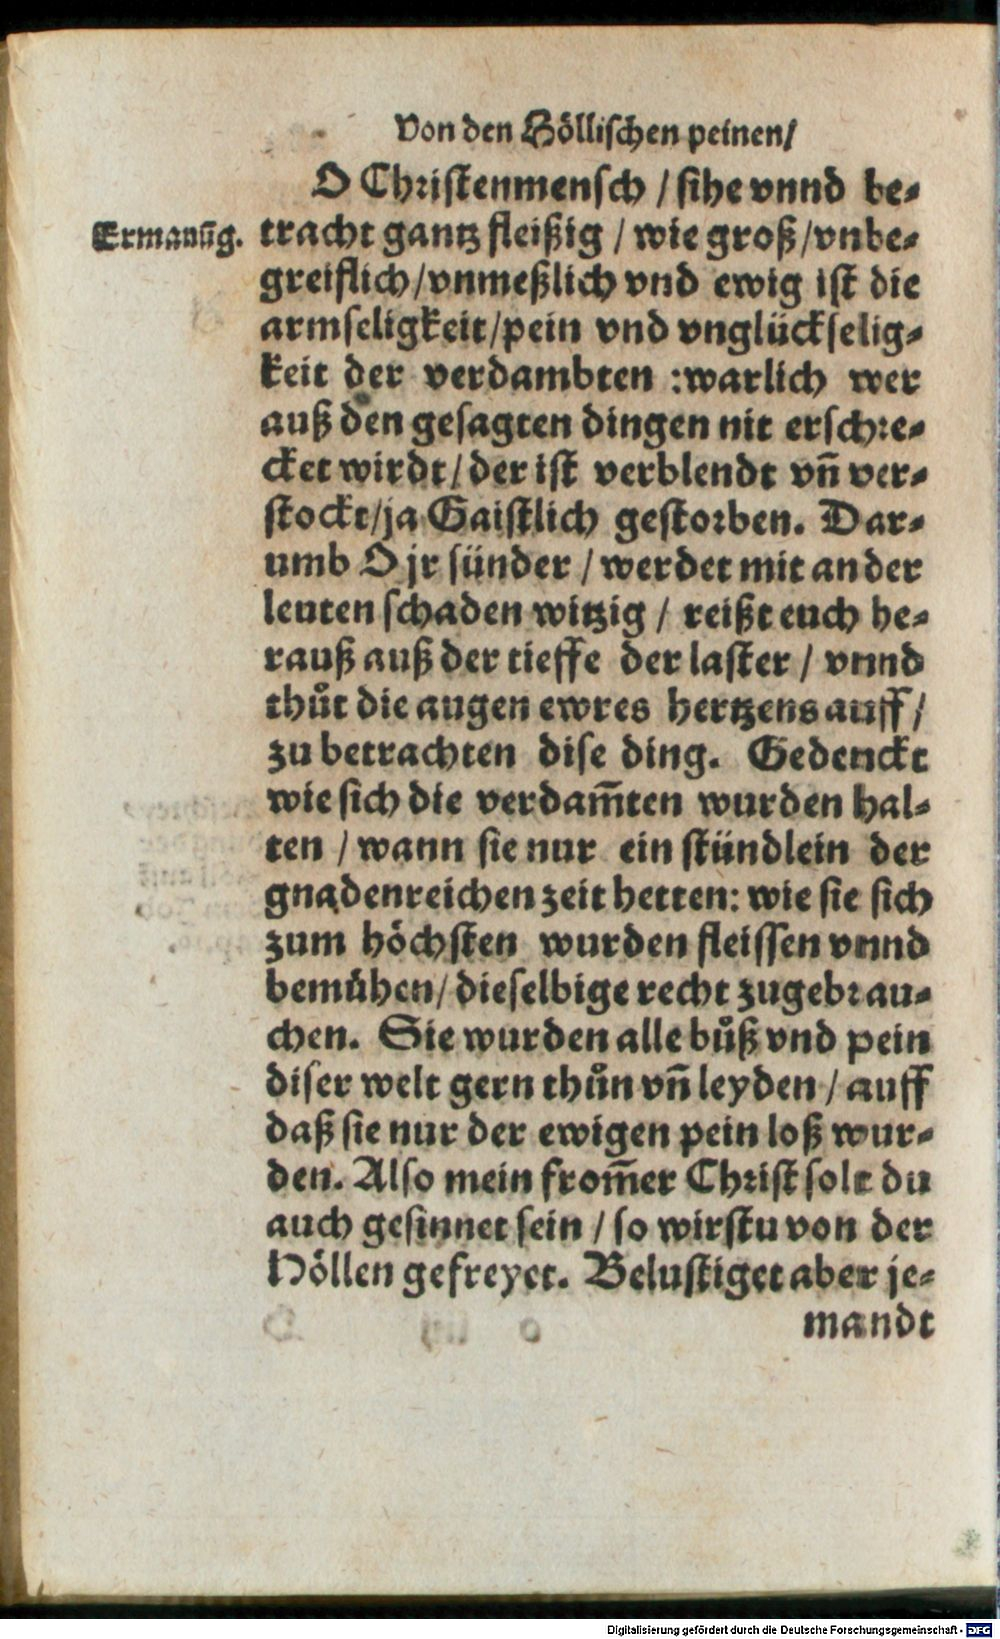 Von den Höllischen peinen/
O Christenmensch / sihe vnnd be-
Ermanūg. tracht gantz fleißig / wie groß/vnbe-
greiflich/vnmeßlich vnd ewig ist die
armseligkeit/pein vnd vnglückselig-
keit der verdambten :warlich wer
auß den gesagten dingen nit erschre-
cket wirdt/ der ist verblendt vñ ver-
stockt/ja Gaistlich gestorben. Dar-
umb O jr sünder / werdet mit ander
leuten schaden witzig / reißt euch he-
rauß auß der tieffe der laster / vnnd
thůt die augen ewres hertzens auff /
zu betrachten dise ding. Gedenckt
wie sich die verdam̃ten wurden hal-
ten / wann sie nur ein stündlein der
gnadenreichen zeit hetten: wie sie sich
zum höchsten wurden fleissen vnnd
bemühen/ dieselbige recht zugebrau-
chen. Sie wurden alle bůß vnd pein
diser welt gern thůn vñ leyden / auff
daß sie nur der ewigen pein loß wur-
den. Also mein from̃er Christ solt du
auch gesinnet sein / so wirstu von der
Höllen gefreyet. Belustiget aber je-
mandt
Digitalisierung gefördert durch die Deutsche Forschungsgemeinschaft - DFG